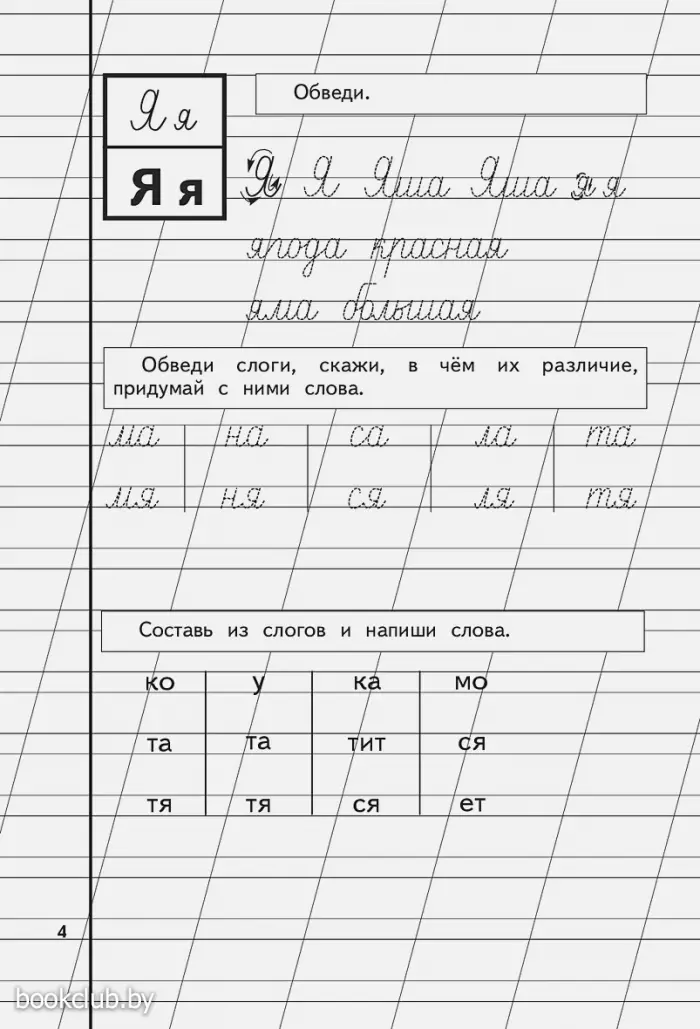 Я я
Я я
Обведи.
Я Я Яша Яша я я
ягода красная
яма большая
Обведи слоги, скажи, в чём их различие,
придумай с ними слова.
ма на са ла та
мя ня ся ля тя
Составь из слогов и напиши слова.
ко у ка мо
та та тит ся
тя тя ся ет
4
bookclub.by